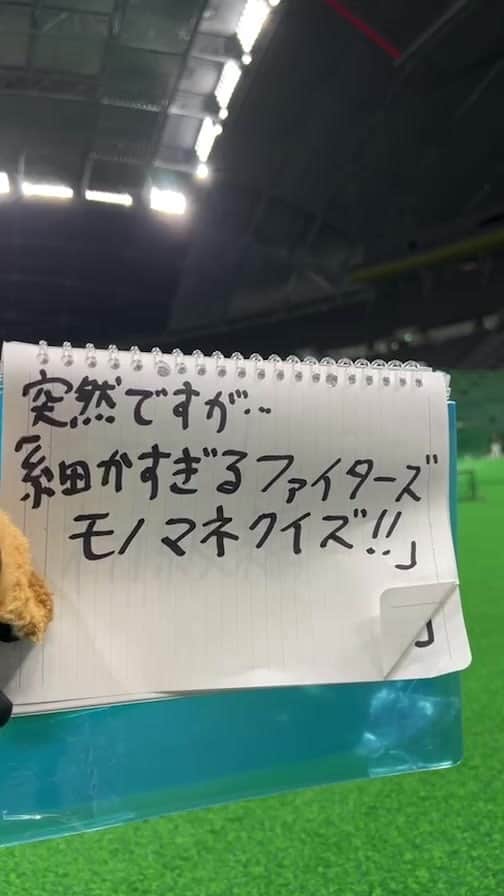 突然ですが‥
「細かすぎるファイターズ
モノマネクイズ!!」
」